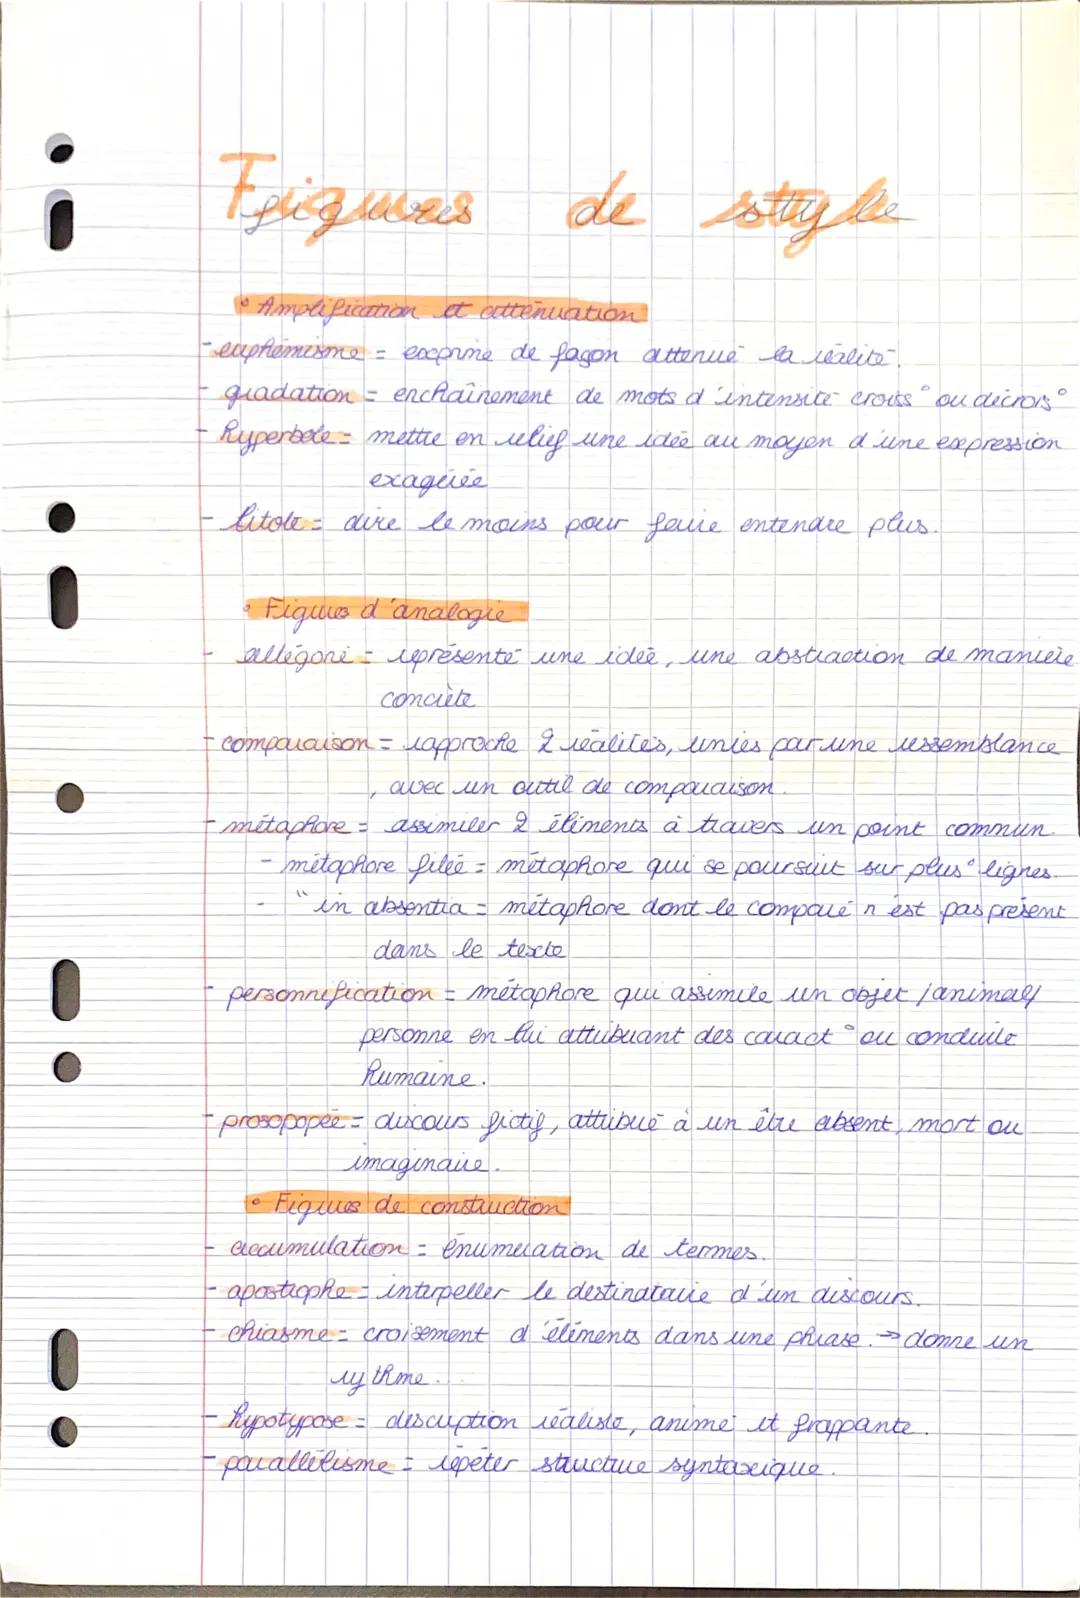 Figures de style
• Amplification et atténuation
- euphémisme = exprime de façon attenué la réalité.
- gradation = enchaînement de mots d'intensité croiss° ou décrois°
- hyperbole = mettre en relief une idée au moyen d'une expression
exagérée
- litote = dire le moins pour faire entendre plus.
• Figures d'analogie
- allégorie = représente une idée, une abstraction de manière
concrète
- comparaison = rapproche 2 réalités, unies par une ressemblance
, avec un outil de comparaison.
- métaphore = assimiler 2 éléments à travers un point commun.
- métaphore filée = métaphore qui se poursuit sur plus° lignes.
- " in absentia = métaphore dont le comparé n'est pas présent
dans le texte
- personnification = métaphore qui assimile un objet / animal/
personne en lui attribuant des caract° ou conduite
humaine.
- prosopopée = discours fictif, attribué à un être absent, mort ou
imaginaire.
• Figures de construction
- accumulation = énumération de termes.
- apostrophe = interpeller le destinataire d'un discours.
- chiasme = croisement d'éléments dans une phrase. → donne un
rythme...
- hypotypose = description réaliste, animé et frappante.
- parallélisme = répéter structure syntaxique.